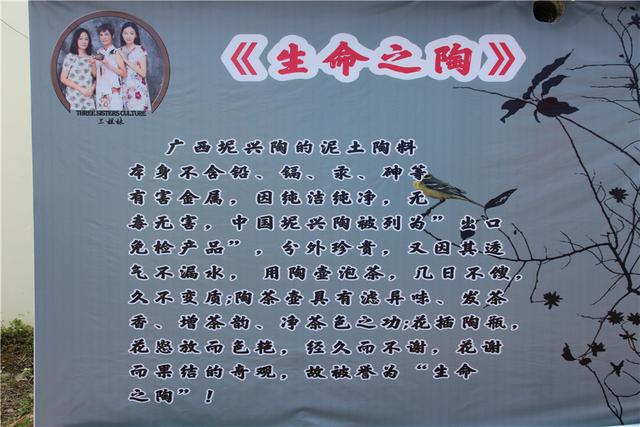 《生命之陶》
THREE SISTERS CULTURE
三姐妹
广西坭兴陶的泥土陶料
本身不含铅、镉、汞、砷等
有害金属，因纯洁纯净，无
毒无害，中国坭兴陶被列为”出口
免检产品”，分外珍贵，又因其透
气不漏水，用陶壶泡茶，几日不馊，
久不变质;陶茶壶具有滤异味、发茶
香、增茶韵、净茶色之功;花插陶瓶，
花怒放而色艳，经久而不谢，花谢
而果结的奇观，故被誉为“生命
之陶”！